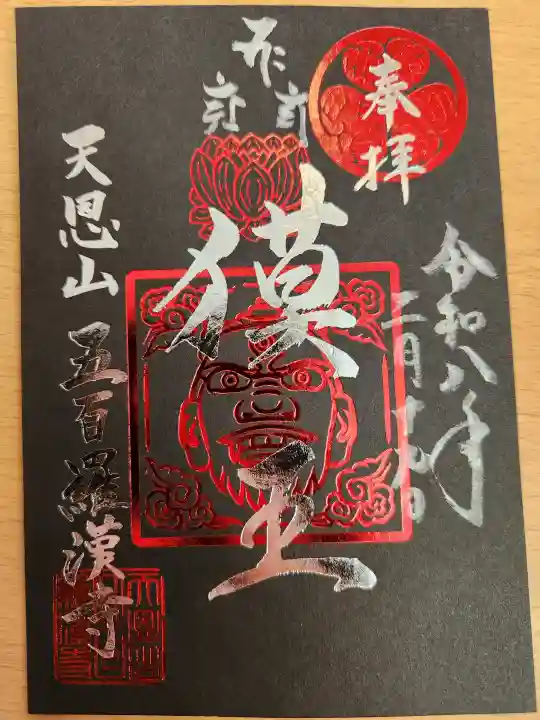 奉拝
令和八年
二月十九日
獏王
天恩山 五百羅漢寺